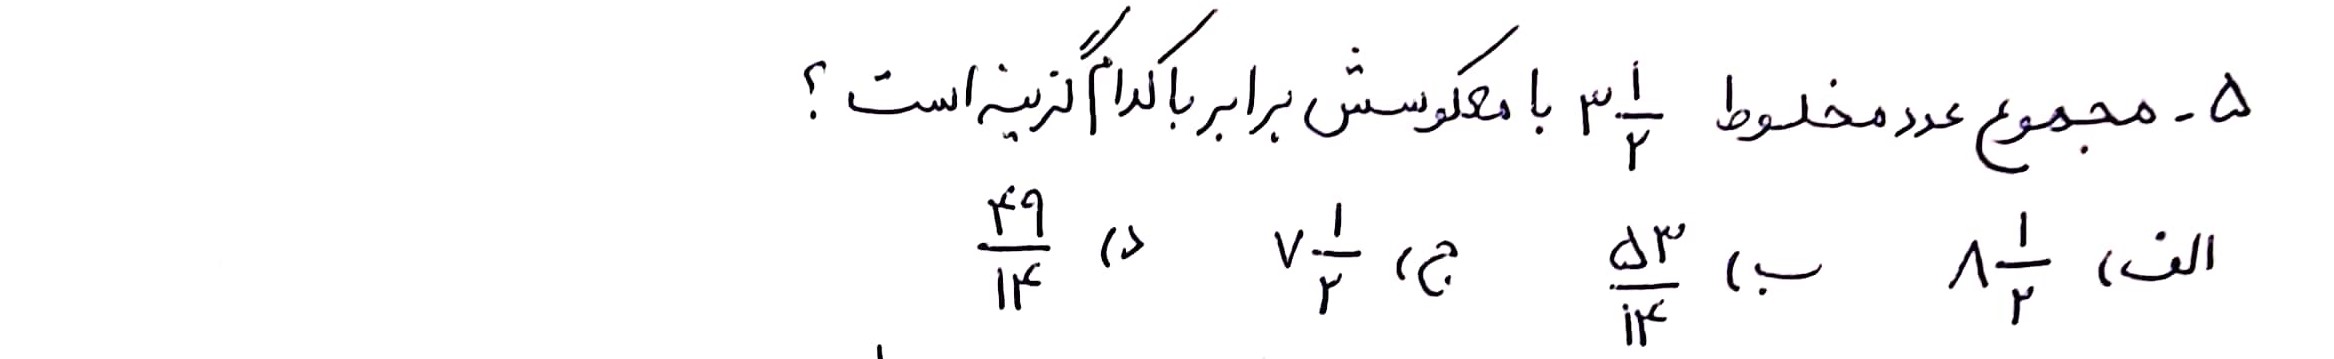 ۵- مجموع عدد مخلوط ۳ ۱/۲ با معکوسش برابر با کدام گزینه است؟
الف) ۸ ۱/۲ ب) ۵۳/۱۴ ج) ۷ ۱/۲ د) ۴۹/۱۴